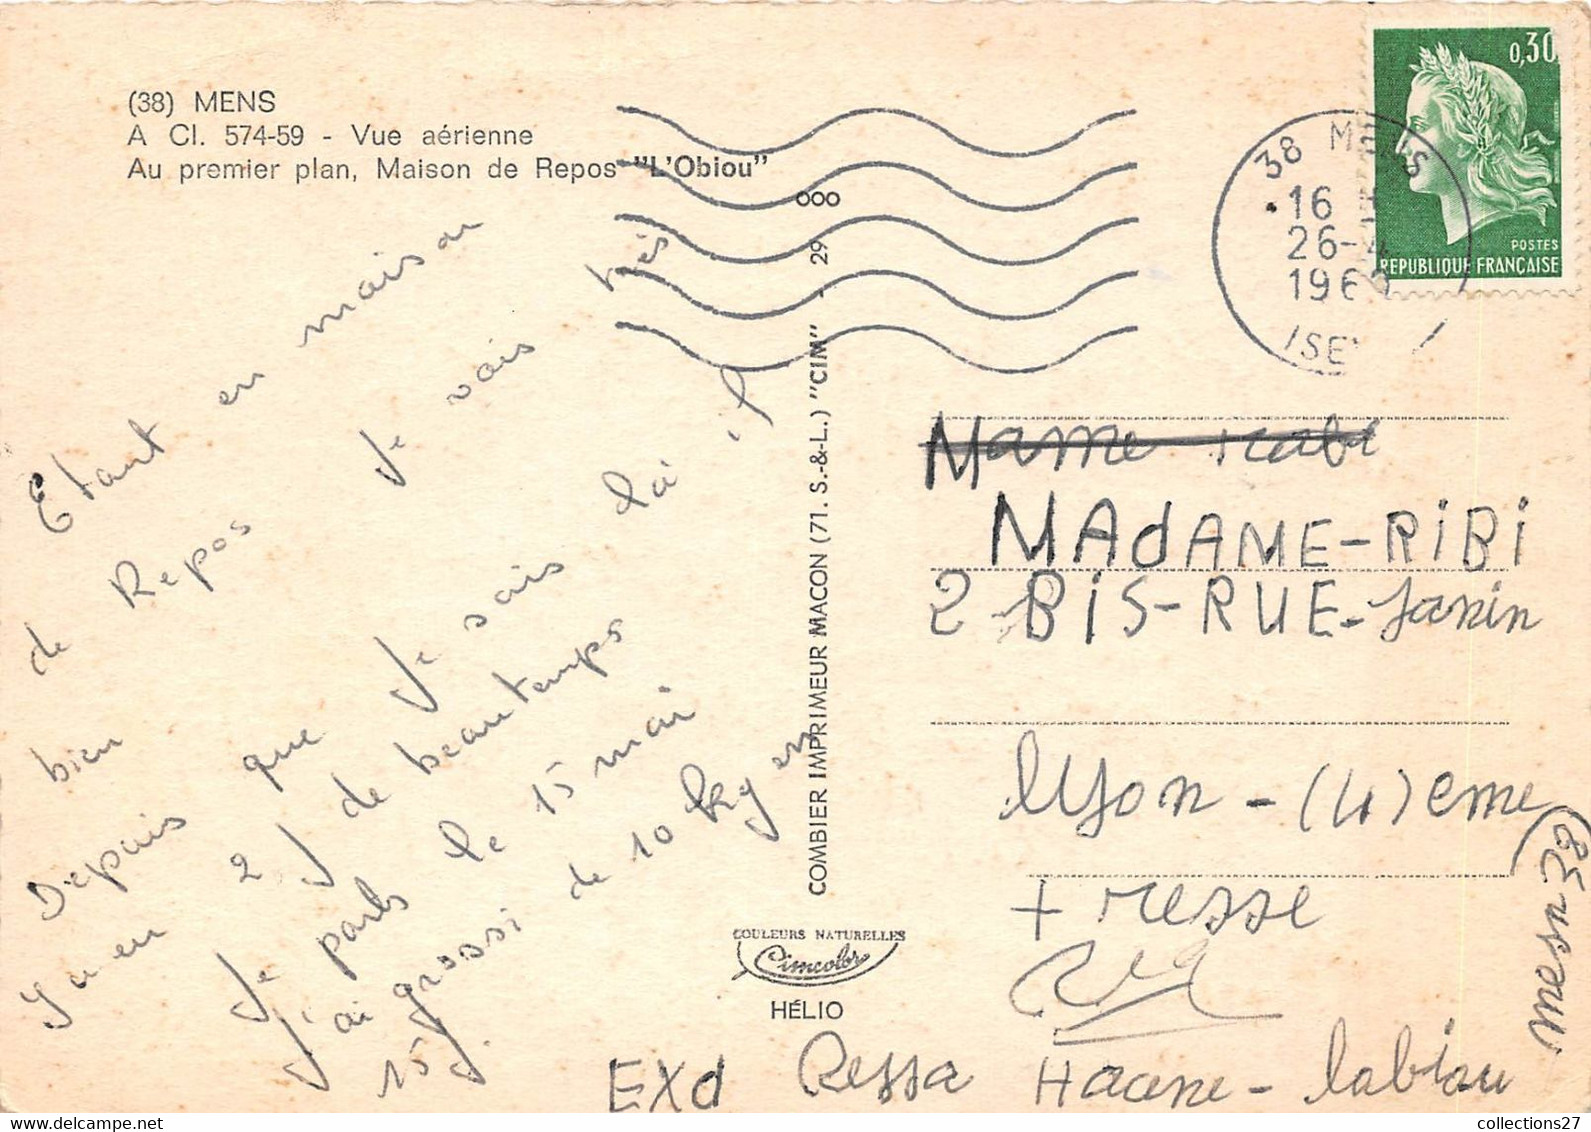 (38) MENS
A Cl. 574-59 - Vue aérienne
Au premier plan, Maison de Repos "L'Obiou"
0,30
POSTES
REPUBLIQUE FRANÇAISE
38 MENS
16 H
26-4
196
ISE
Etant en maison
de Repos Je vais très
bien
Depuis que Je sais lai il
Y a en 2 J de beautemps
Je parls le 15 mai
J'ai grossi de 10 kg en
15 J.
COMBIER IMPRIMEUR MACON (71. S.-&-L.) "CIM" - 29 000
COULEURS NATURELLES
Cimcolor
HÉLIO
Mame
MAdAME-RiBi
2-BiS-RUE-Janin
lyon-(4)eme
+ resse
EXd Ressa Hacene-labiou
mesn 38
collections27